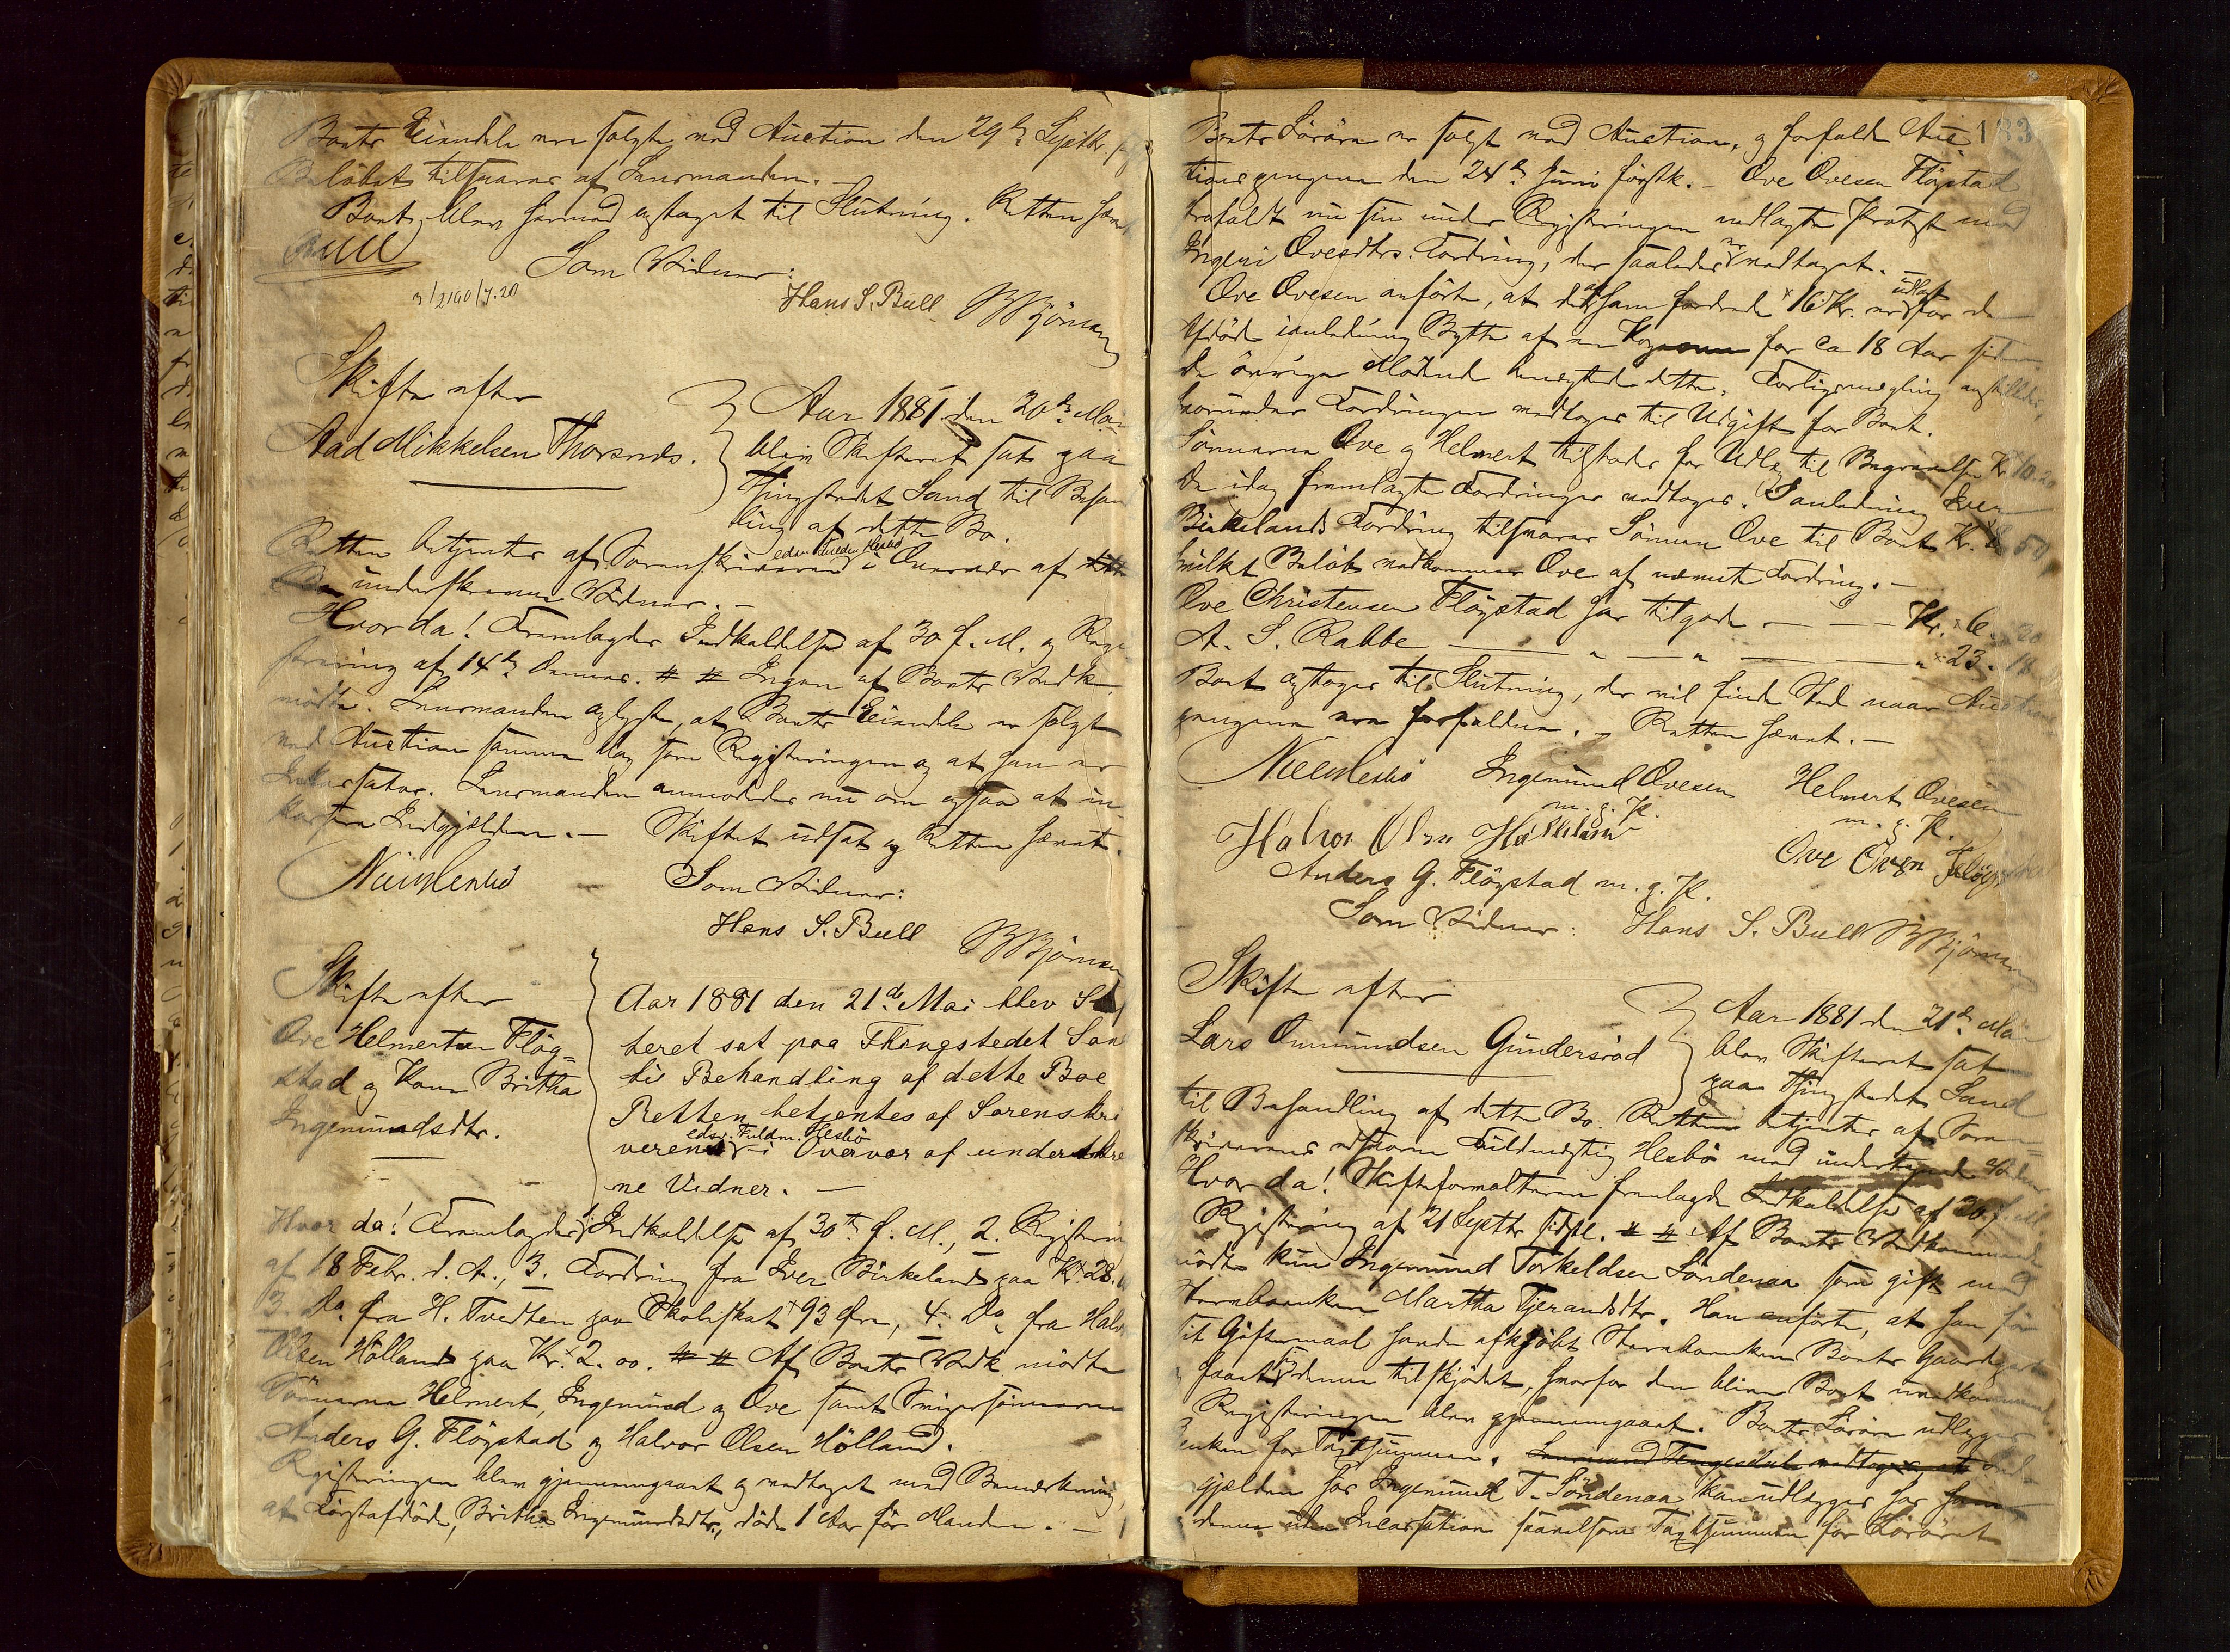 Boets Eiendele ere solgte ved Auction den 29de Septbr.
Beløbet tilsvares af Lensmanden.
Boet blev hermed optaget til Slutning. Retten hævet
Bull
Som Vidner:
Hans S. Bull BBjørnsen
Skifte efter
Aad Mikkelsen Thorsnes.
Aar 1881 den 20de Mai
blev Skifteret sat paa
Thingstedet Sand til Behan
ling af dette Bo.
Retten betjentes af Sorenskriveren edsv. Fuldm. Hesbø i Overvær af
underskrevne Vidner.
Hvor da! Fremlagdes Indkaldelse af 30 f. M. og Regi
strering af 14de Dennes. # # Ingen af Boets Vedk.
mødte. Lensmanden oplyste, at Boets Eiendele er solgt
ved Auction samme Dag som Registeringen og at han er
Inkassator. Lensmanden anmodedes nu om ogsaa at in
kassere Indgjælden. — Skiftet udsat og Retten hævet.
NielsHesbø
Som Vidner:
Hans S. Bull BBjørnsen
Skifte efter
Ove Helmertsen Fløg=
stad og Kone Britha
Ingemundsdtr.
Aar 1881 den 21de Mai blev Ski
teret sat paa Thingstedet San
til Behandling af dette Boe
Retten betjentes af Sorenskri
veren edsv. Fuldm. Hesbø i Overvær af underskre
ne Vidner. —
Hvor da! Fremlagdes 1. Indkaldelse af 30te f. M., 2. Registerin
af 18 Febr. d. A., 3. Fordring fra Iver Birkeland paa Kr. 28.
3. Do. fra H. Tvedten paa Skoleskat 93 Øre, 4. Do. fra Halv
Olsen Hølland paa Kr. 2.00. # # Af Boets Vedk. mødte
Sønnerne Helmert, Ingemund og Ove samt Svigersønnerne
Anders G. Fløgstad og Halvor Olsen Hølland.
Registeringen blev gjennemgaaet og vedtaget med Bemærkning,
at Førstafdøde, Britha Ingemundsdtr., døde 1 Aar før Manden. —
183
Boets Løsøre er solgt ved Auction, og forfalde Auc
tionspengene den 24de Juni førstk. — Ove Ovesen Fløgstad
frafaldt nu sin under Registeringen nedlagte Protest mod
Ingeri Ovesdtrs. Fordring, der saaledes er vedtaget.
Ove Ovesen anførte, at det af ham fordrede 16 Kr. er udlagt for de
Afdøde i anledning Bytte af en Ko for ca 18 Aar siden
De øvrige Mødende benegtede dette. Forligsmegling anstilledes,
hvorunder Fordringen vedtoges til Udgift for Boet.
Sønnerne Ove og Helmert tilstodes for Udlæg til Begravelse Kr. 10.20
De idag fremlagte Fordringer vedtoges. I anledning Iver
Birkelands Fordring tilsvarer Sønnen Ove til Boet Kr.
hvilket Beløb vedkommer Ove af nævnte Fordring. —
Ove Christensen Fløgstad har tilgode — — — Kr. 6. 20
A. S. Rabbe — " — " — — " 23. 18
Boet optages til Slutning, der vil finde Sted naar Auctions
pengene ere forfaldne. — Retten hævet. —
NielsHesbø Ingemund Ovesen Helmert Ovesen
m. g. P. m. g. P.
Halvor Olsen Hølland Ove Ovesn Fløgstad
Anders G. Fløgstad m. g. P.
Som Vidner: Hans S. Bull BBjørnsen
Skifte efter
Lars Ommundsen Gundersrød
Aar 1881 den 21de Mai
blev Skifteret sat
paa Thingstedet Sand
til Behandling af dette Bo. Retten betjentes af Soren=
skriverens edsvorne Fuldmægtig Hesbø med undertegnede Vidner.
Hvor da! Skifteforvalteren fremlagde Indkaldelse af 30 f. M.
Registering af 21 Septbr. sidstl. # # Af Boets Vedkommende
mødte kun Ingemund Torkeldsen Søndenaa som gift med
Stervboenken Martha Tjerandsdtr. Han anførte, at han før
sit Giftermaal havde afkjøbt Stervboenken Boets Gaard
faaet denne tilskjødet, hvorfor den bliver Boet uvedkommende.
Registeringen blev gjennemgaaet. Boets Løsøre udlægges
Enken for Taxtsummen. Lensmand vedtages, at Ind
gjælden for Ingemund T. Søndenaa kan udlægges for
denne uden Incassation saavelsom Taxtsummen for Løsøret